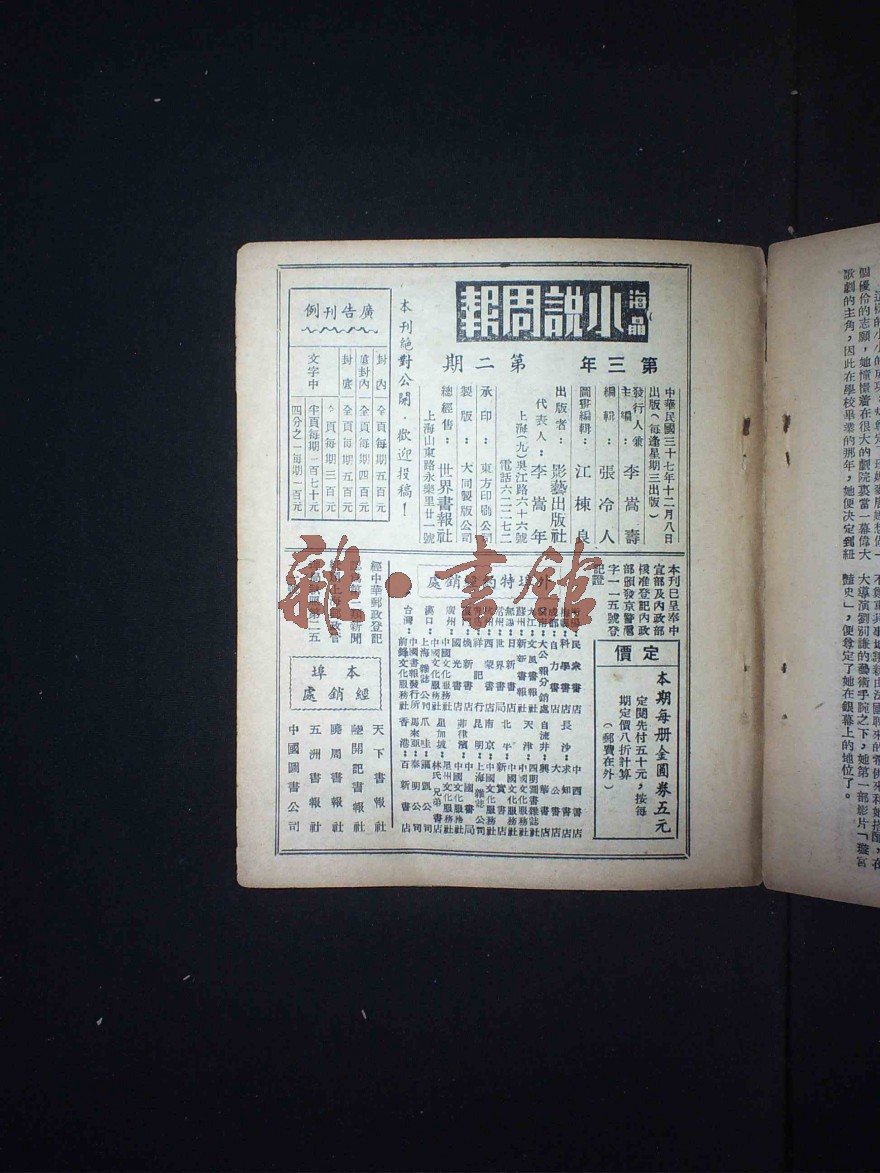 海晶
小說周報
第三年　第二期
中華民國三十七年十二月八日
出版（每逢星期三出版）
發行人兼
主編：李嵩壽
編輯：張冷人
圖畫編輯：江棟良
出版者：影藝出版社
代表人：李嵩年
上海(九)吳江路六十六號
電話六二二七二
承印：東方印刷公司
製版：大同製版公司
總經售：世界書報社
上海山東路永樂里廿一號
本刊絕對公開．歡迎投稿！
廣告刊例
封內　全頁每期五百元
底封內　全頁每期四百元
封底　全頁每期五百元
文字中
頁每期三百元
半頁每期一百七十元
四分之一每期一百元
本刊已呈奉中
宣部及內政部
核准登記內政
部頒發京警滬
字一二五號登
記證
定價
本期每册金圓券五元
定閱先付五十元，按每
期定價八折計算
（郵費在外）
外埠特約經銷處
民衆書店
科學書店
成都：自力書店
大公報分銷處
文風書報社
蘇州：新新書報社
無錫：日新書店
常州：世界書局
杭州：西蒙書店
煥新書店
廣州：國光書店
中國文化服務社
漢口：上海雜誌公司
台灣：中國書報發行所
前鋒文化服務社
中西書店
長沙：求知書店
大公書店
自流井：興華書店
天津：四明圖書雜誌社
中國文化服務社
北平：新實書店
南京：中國文化服務社
菲律濱：中國書局
昆明：上海雜誌公司
星加坡：星州文化服務社
林氏兄弟書店
爪哇：暹凱公司
馬來亞：泰明公司
香港：百新書店
經中華郵政登記
第二類新聞
上海郵政管
執照第二五
本埠經銷處
天下書報社
陸開記書報社
曉周書報社
五洲書報社
中國圖書公司
雜·書館
個優伶的志願，她憧憬着在很大的劇院裏當一幕偉大
歌劇的主角，因此在學校畢業的那年，她便決定到紐
大導演劉別謙的藝術手腕之下，她第一部影片「璇宮
豔史」，便奠定了她在銀幕上的地位了。